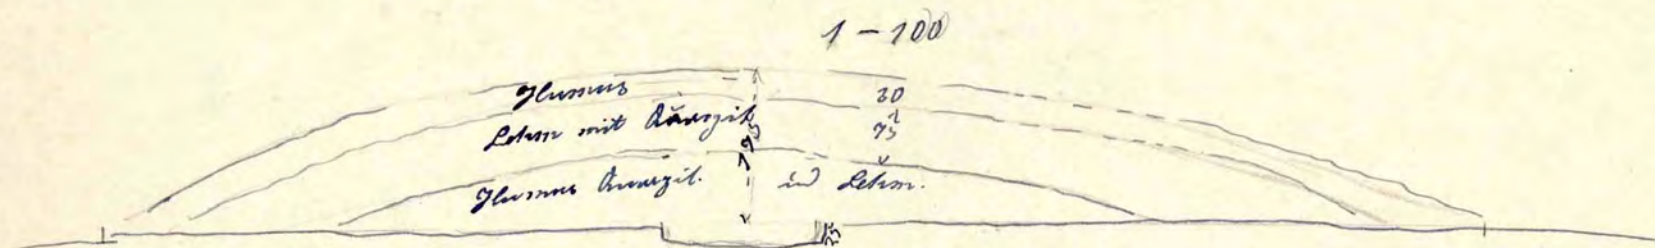 1 – 100
Humus 30
Lehm mit Quarzit 75
195
Humus Quarzit. ud Lehm.